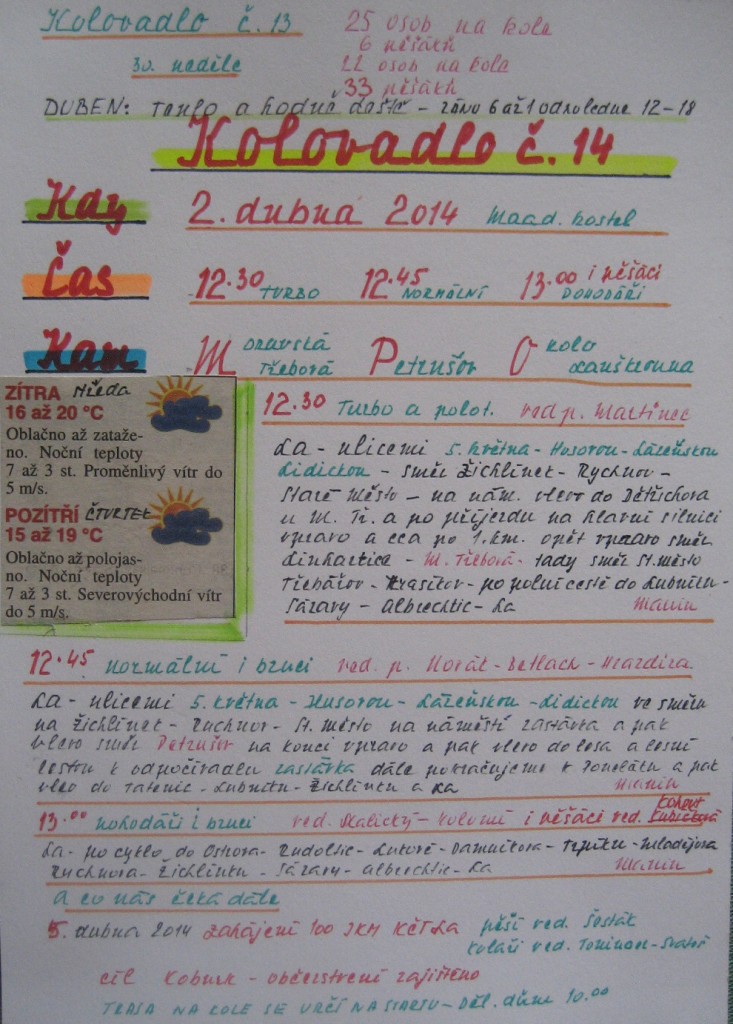 Kolovadlo č. 13 25 osob na kole
6 pěšákh
30. neděle 22 osob na kole
33 pěšákh
DUBEN: Teplo a hodně - ráno 6 až 1 odpoledne 12-18
Kolovadlo č. 14
Kdy 2. dubna 2014 Maad. kostel
Čas 12.30 TURBO 12.45 NORMÁLNÍ 13.00 i pěšáci POHODÁŘI
Kam Moravská Třebová Petrušov Okolo Lanškrouna
ZÍTRA středa
16 až 20 °C
Oblačno až zataže-
no. Noční teploty
7 až 3 st. Proměnlivý vítr do
5 m/s.
POZÍTŘÍ ČTVRTEK
15 až 19 °C
Oblačno až polojas-
no. Noční teploty
7 až 3 st. Severovýchodní vítr
do 5 m/s.
12.30 Turbo a polot. ved. p. Martinec
La - ulicemi 5. května - Husovou - Lázeňskou
Lidickou - směr Žichlínek - Rychnov -
Staré Město - na nám. vlevo do Dětřichova
u M. Tř. a po příjezdu na hlavní silnici
vpravo a cca po 1. km. opět vpravo směr
Linhartice - M. Třebová - tady směr St. město
Třebařov - Krasíkov - po polní cestě do Lubníku -
Sázavy - Albrechtic - La
12.45 normální i bruci ved. p. Horák - Betlach - Hvazdira
La - ulicemi 5. května - Husovou - Lázeňskou - Lidickou ve směru
na Žichlínek - Rychnov - St. město na náměstí zastávka a pak
vlevo směr Petrušov na konci vpravo a pak vlevo do lesa a lesní
cestou k odpočívadlu zastávka dále pokračujeme k a pak
vlevo do Tatenic - Lubníku - Žichlínku a La
13.00 pohodáři i bruci ved. Skalický - i pěšáci ved. Kohout
La - po cyklo do Ostrova - Rudoltic - Lukové - Damníkova - Trpíku - Mladějova
Rychnova - Žichlínku - Sázavy - Albrechtic - La
A co nás čeká dále
5. dubna 2014 zahájení 100 JKM KČT La pěší ved. Šosták
kolaři ved.
cíl Koburk - občerstvení zajištěno
TRASA NA KOLE SE URČÍ NA STARTU - Děl. dům 10.00